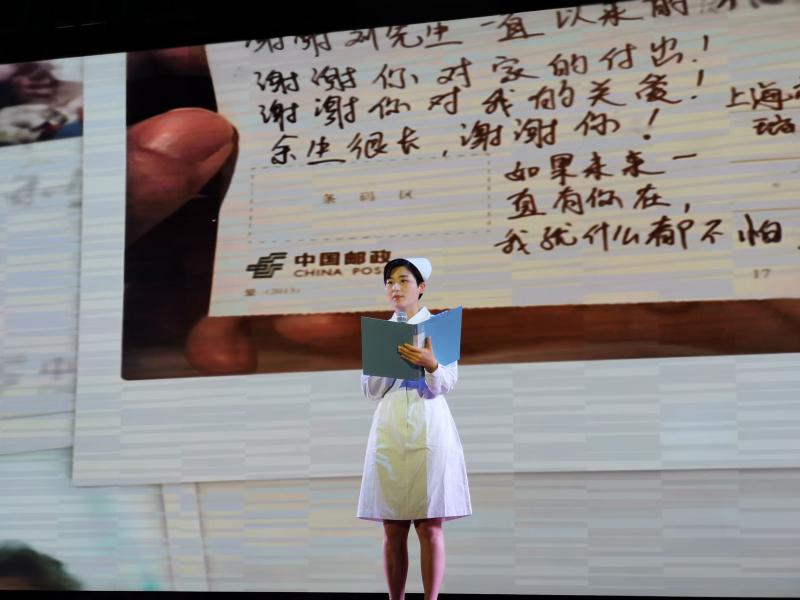 谢谢刘先生一直以来的
谢谢你对家的付出!
谢谢你对我的关爱!
余生很长,谢谢你!
如果未来一
直有你在,
我就什么都不怕
上海
条码区
中国邮政
CHINA POS
17